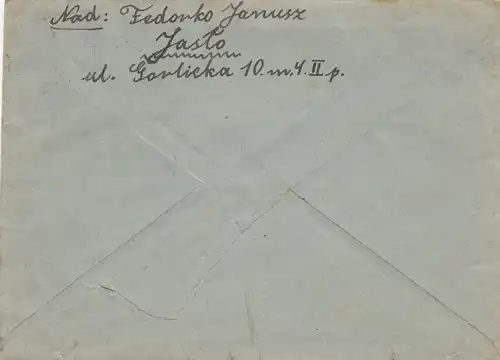 Nad: Fedorko Janusz
Jasło
ul. Gorlicka 10. m. 4. II p.